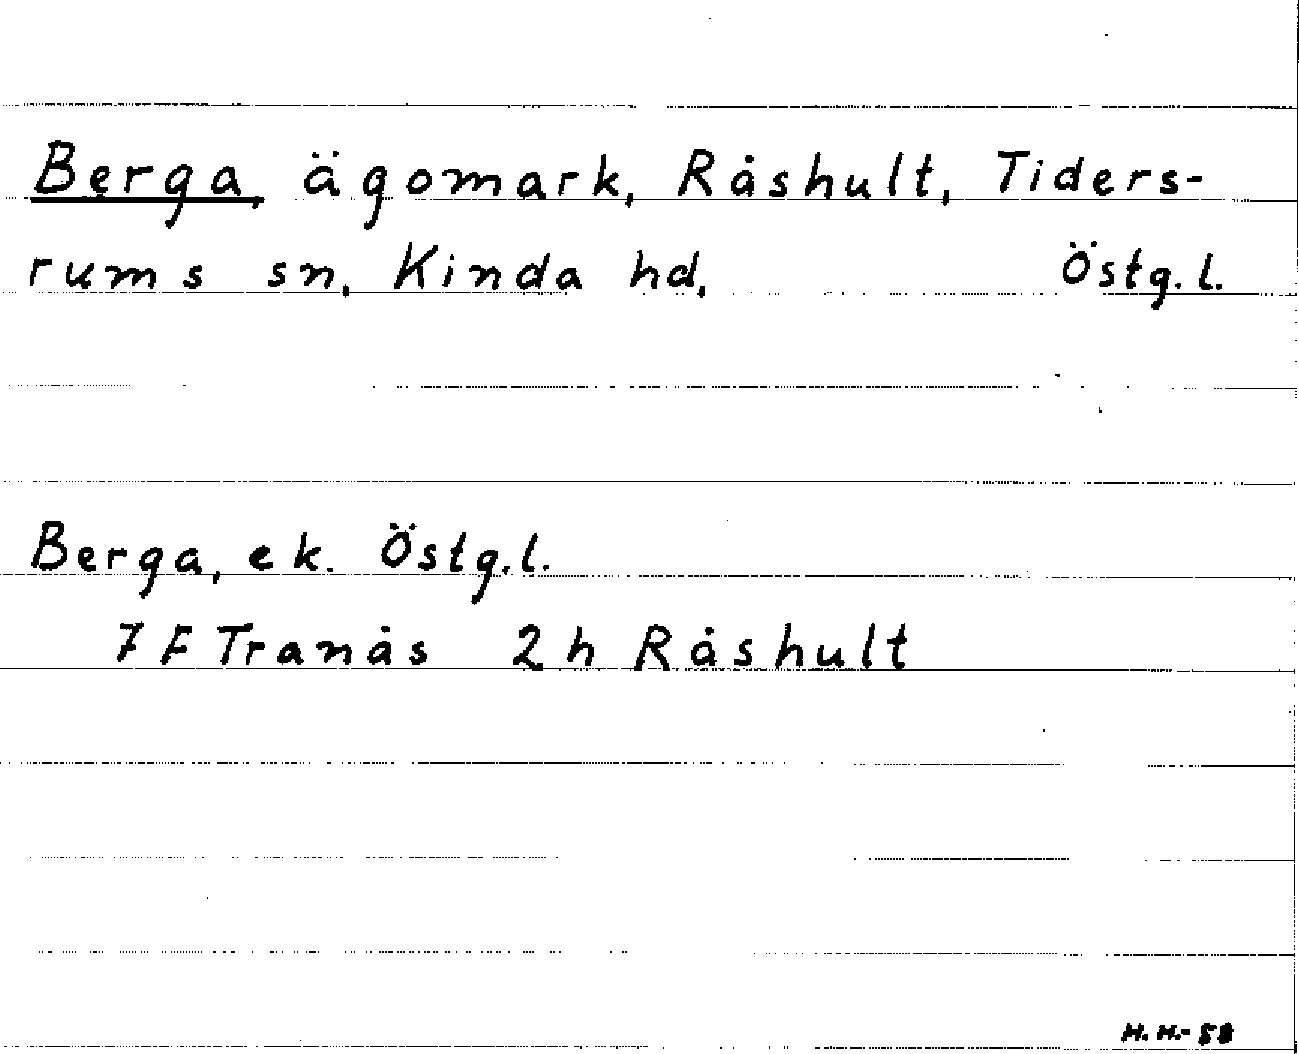 Berga, ägomark, Råshult, Tiders-
rums sn, Kinda hd, Östg.l.
Berga, ek. Östg.l.
7F Tranås 2h Råshult
H.H.-58